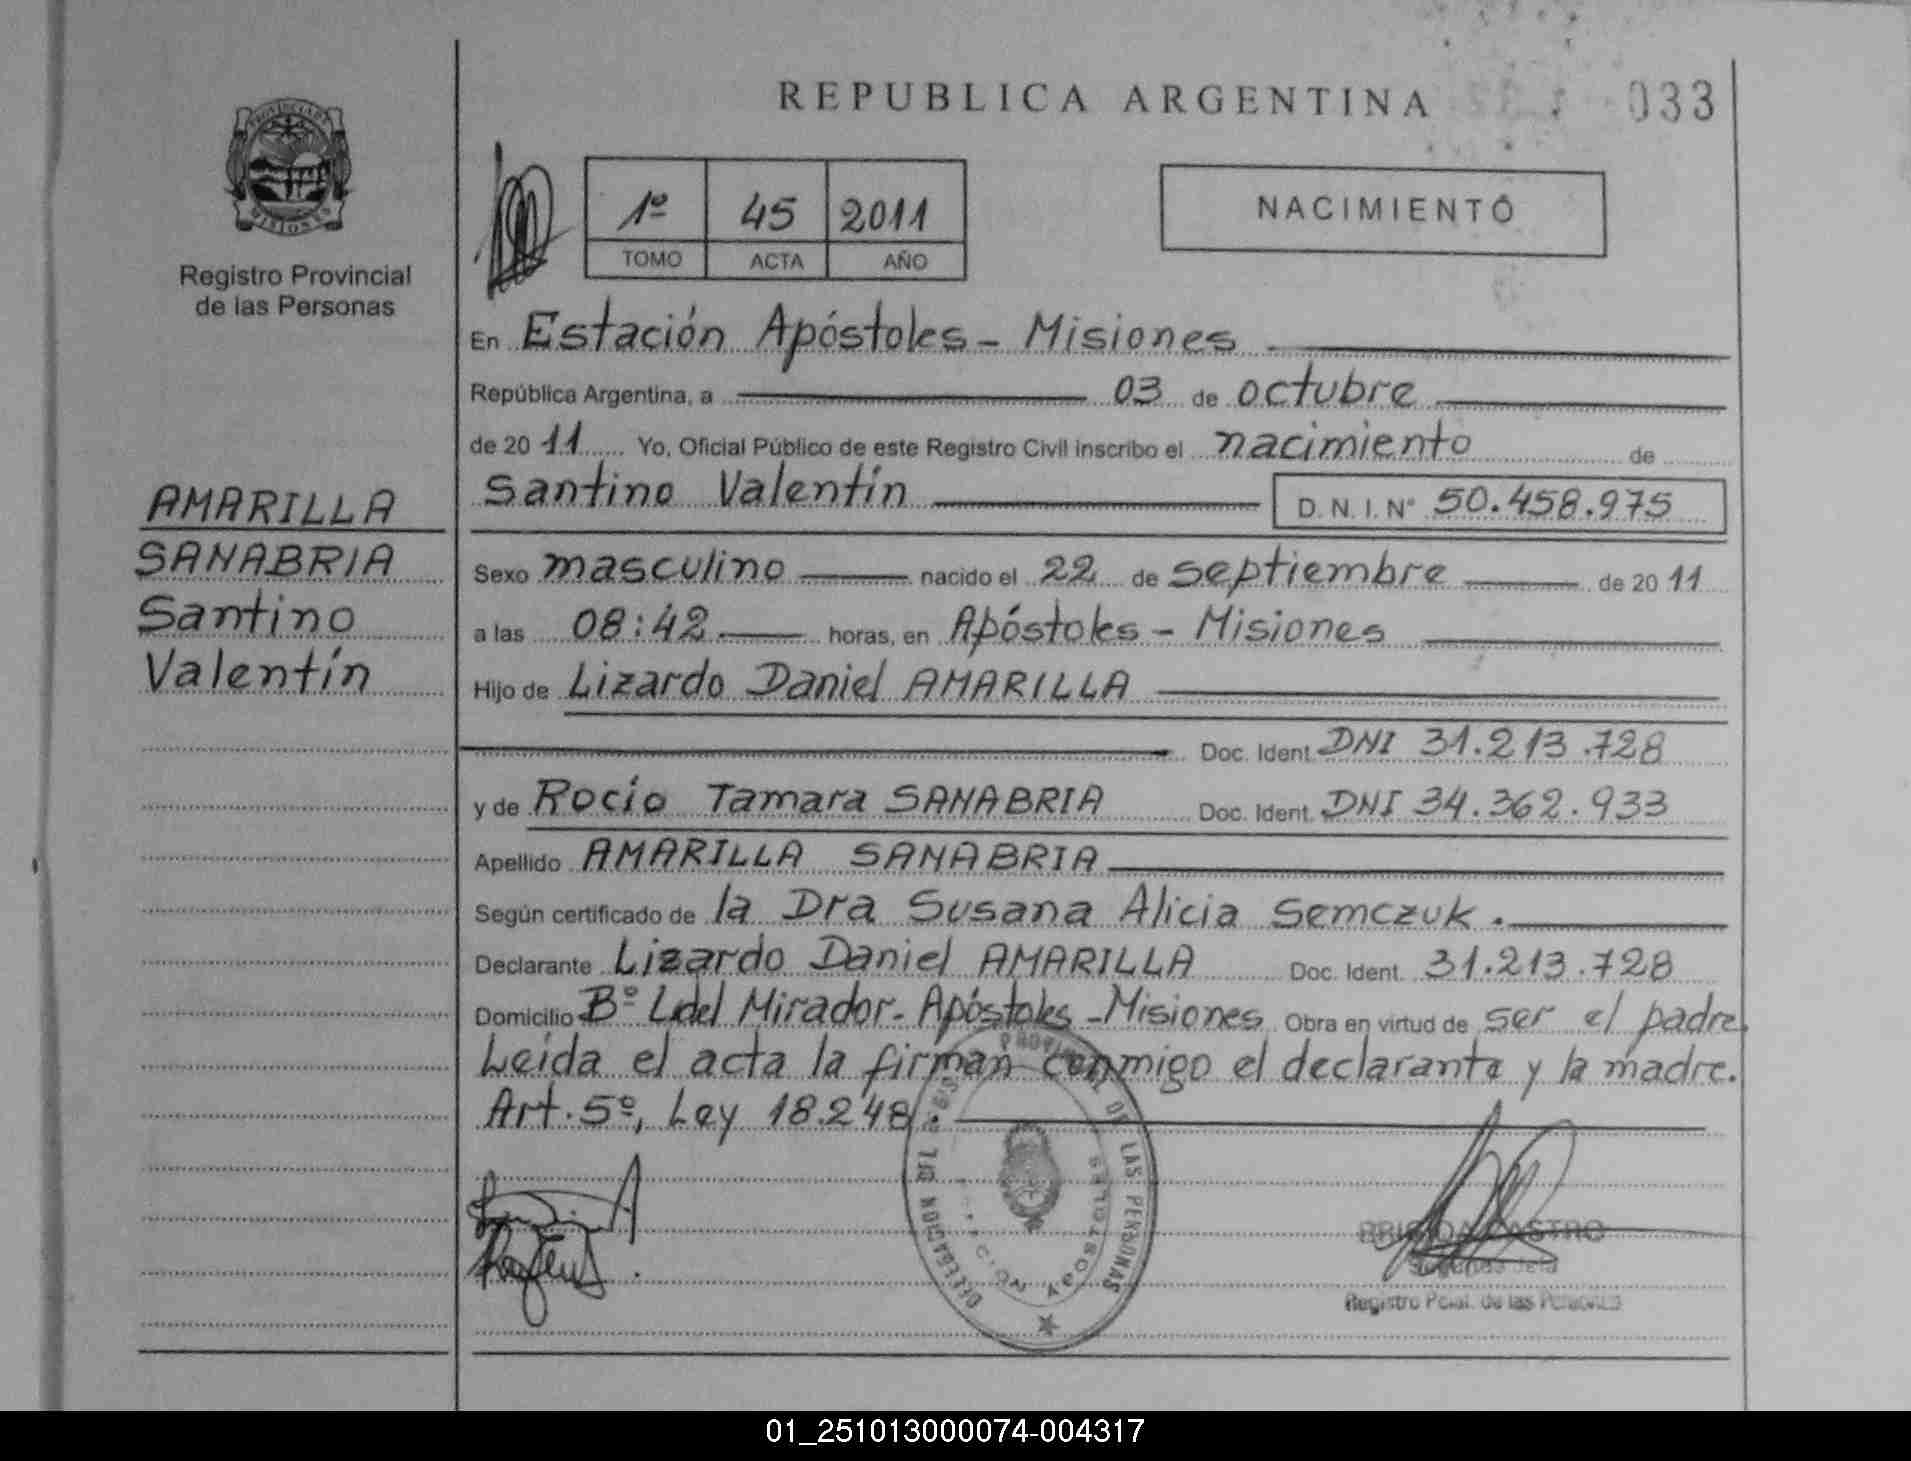 REPUBLICA ARGENTINA
033
PROVINCIA DE MISIONES
Registro Provincial
de las Personas
1º 45 2011
TOMO ACTA AÑO
NACIMIENTO
AMARILLA
SANABRIA
Santino
Valentín
En Estación Apóstoles - Misiones
República Argentina, a 03 de octubre
de 20 11 Yo, Oficial Público de este Registro Civil inscribo el nacimiento de
Santino Valentín D. N. I. Nº 50.458.975
Sexo masculino nacido el 22 de septiembre de 20 11
a las 08:42 horas, en Apóstoles - Misiones
Hijo de Lizardo Daniel AMARILLA
Doc. Ident. DNI 31.213.728
y de Rocío Tamara SANABRIA Doc. Ident. DNI 34.362.933
Apellido AMARILLA SANABRIA
Según certificado de la Dra Susana Alicia Semczuk.
Declarante Lizardo Daniel AMARILLA Doc. Ident. 31.213.728
Domicilio Bº L. del Mirador - Apóstoles - Misiones Obra en virtud de ser el padre.
Leída el acta la firman conmigo el declarante y la madre.
Art. 5º, Ley 18.248.
DELEGACION DEL REG. PROVINCIAL DE LAS PERSONAS
ESTACION APOSTOLES
BRIGIDA CASTRO
Registro Pcial. de las Personas
01_251013000074-004317